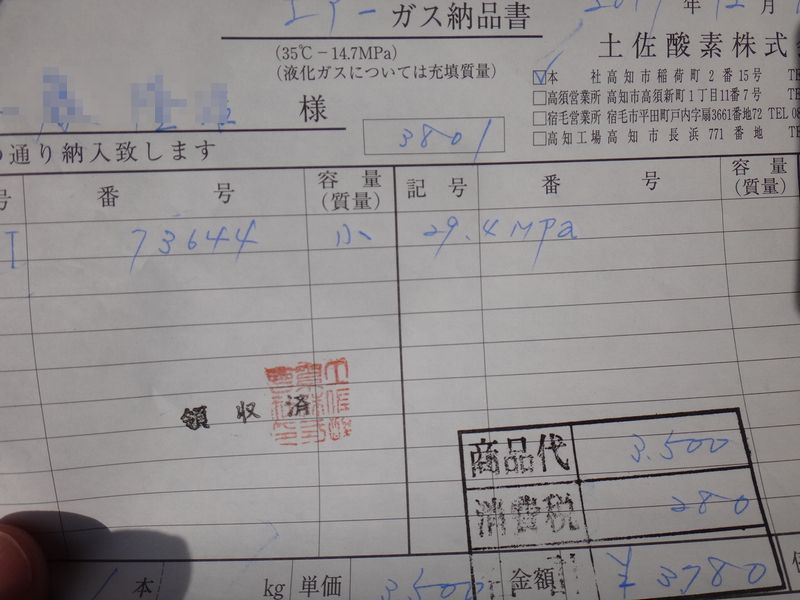 エアー ガス納品書
年12月
(35℃－14.7MPa)
(液化ガスについては充填質量)
土佐酸素株式
様
3801
☑本 社 高知市稲荷町2番15号 TE
□高須営業所 高知市高須新町1丁目11番7号 TE
□宿毛営業所 宿毛市平田町戸内字扇3661番地72 TEL 08
□高知工場 高知市長浜 771 番地 TE
通り納入致します
号 番 号 容量(質量) 記号 番 号 容量(質量)
73644 小 29.4MPa
領収済
商品代 3.500
消費税 280
金額 ¥3780
1本 kg 単価 3.500